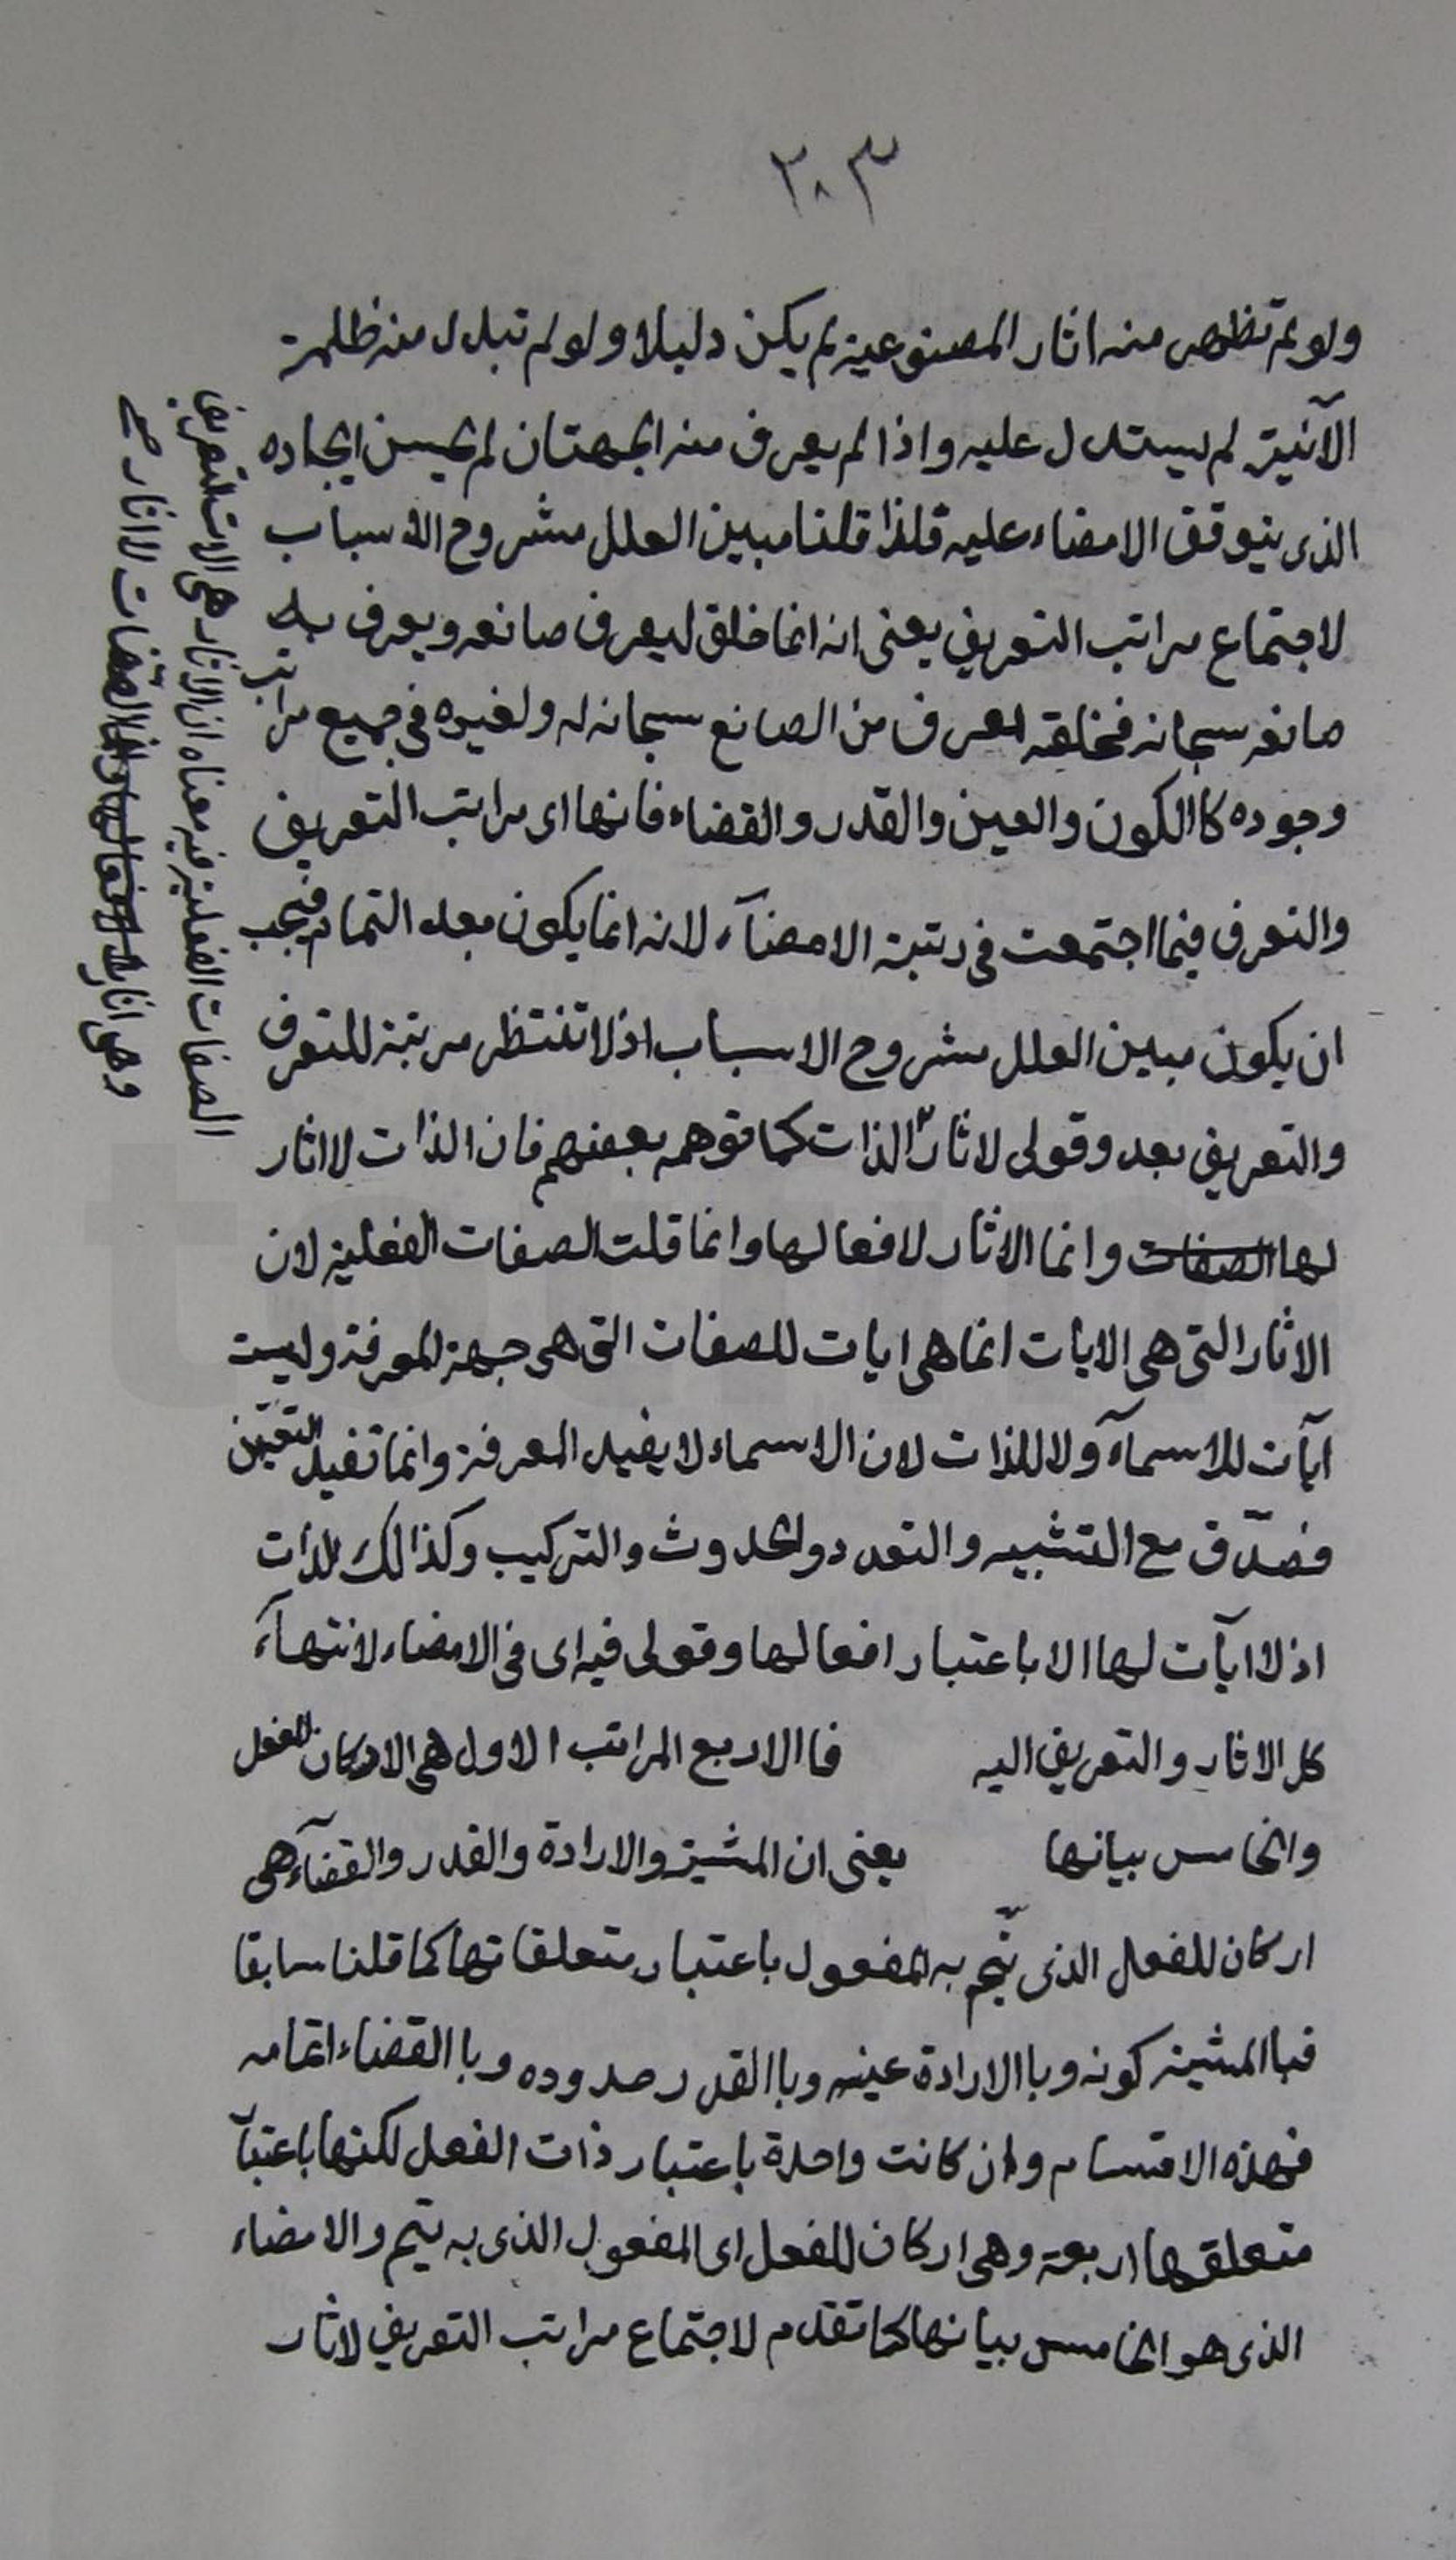 ٢٠٣
ولو لم تظهر منه اثار المصنوعية لم يكن دليلا ولو لم تبدل منه ظلمة
الآنية لم يستدل عليه واذا لم يعرف منه الجهتان لم يحسن ايجاده
الذى يتوقف الامضاء عليه فلذا قلنا مبين العلل مشروح الاسباب
لاجتماع مراتب التعريف يعنى انه انما خلق ليعرف صانعه ويعرف به
صانعه سبحانه فخلقه تعرف من الصانع سبحانه له ولغيره فى جميع مراتب
وجوده كاالكون والعين والقدر والقضاء فانها اى مراتب التعريف
والتعرف فيما اجتمعت فى رتبة الامضآء لانه انما يكون بعد التمام فيجب
ان يكون مبين العلل مشروح الاسباب اذ لا تنتظر مرتبة للتعرف
والتعريف بعد وقولى لاثار الذات كما توهمه بعضهم فان الذات لا اثار
لها الصفات وانما الاثار لافعالها وانما قلت الصفات الفعلية لان
الاثار التى هى الايات انما هى ايات للصفات التى هى جهة المعرفة وليست
ايآت للاسمآء ولا للذات لان الاسماء لا يفيد المعرفة وانما تفيد التعين
فصدق مع التشبيه والتعدد والحدوث والتركيب وكذالك للذات
اذ لا ايآت لها الا باعتبار افعالها وقولى فيه اى فى الامضاء لانتهآء
كل الاثار والتعريف اليه فاالاربع المراتب الاول هى الاركان للفعل
والخامس بيانها يعنى ان المشية والارادة والقدر والقضآء هى
اركان للفعل الذى يتم به المفعول باعتبار متعلقاتها كما قلنا سابقا
فباالمشية كونه وباالارادة عينه وباالقدر حدوده وباالقضاء اتمامه
فهذه الاقسام وان كانت واحدة باعتبار ذات الفعل لكنها باعتبآ
متعلقها اربعة وهى اركان للفعل اى المفعول الذى به يتم والامضاء
الذى هو الخامس بيانها كما تقدم لاجتماع مراتب التعريف لاثار
الصفات الفعلية فيه معناه ان الاثار هى الات التعريف
وهى اثار الصفات لا اثار